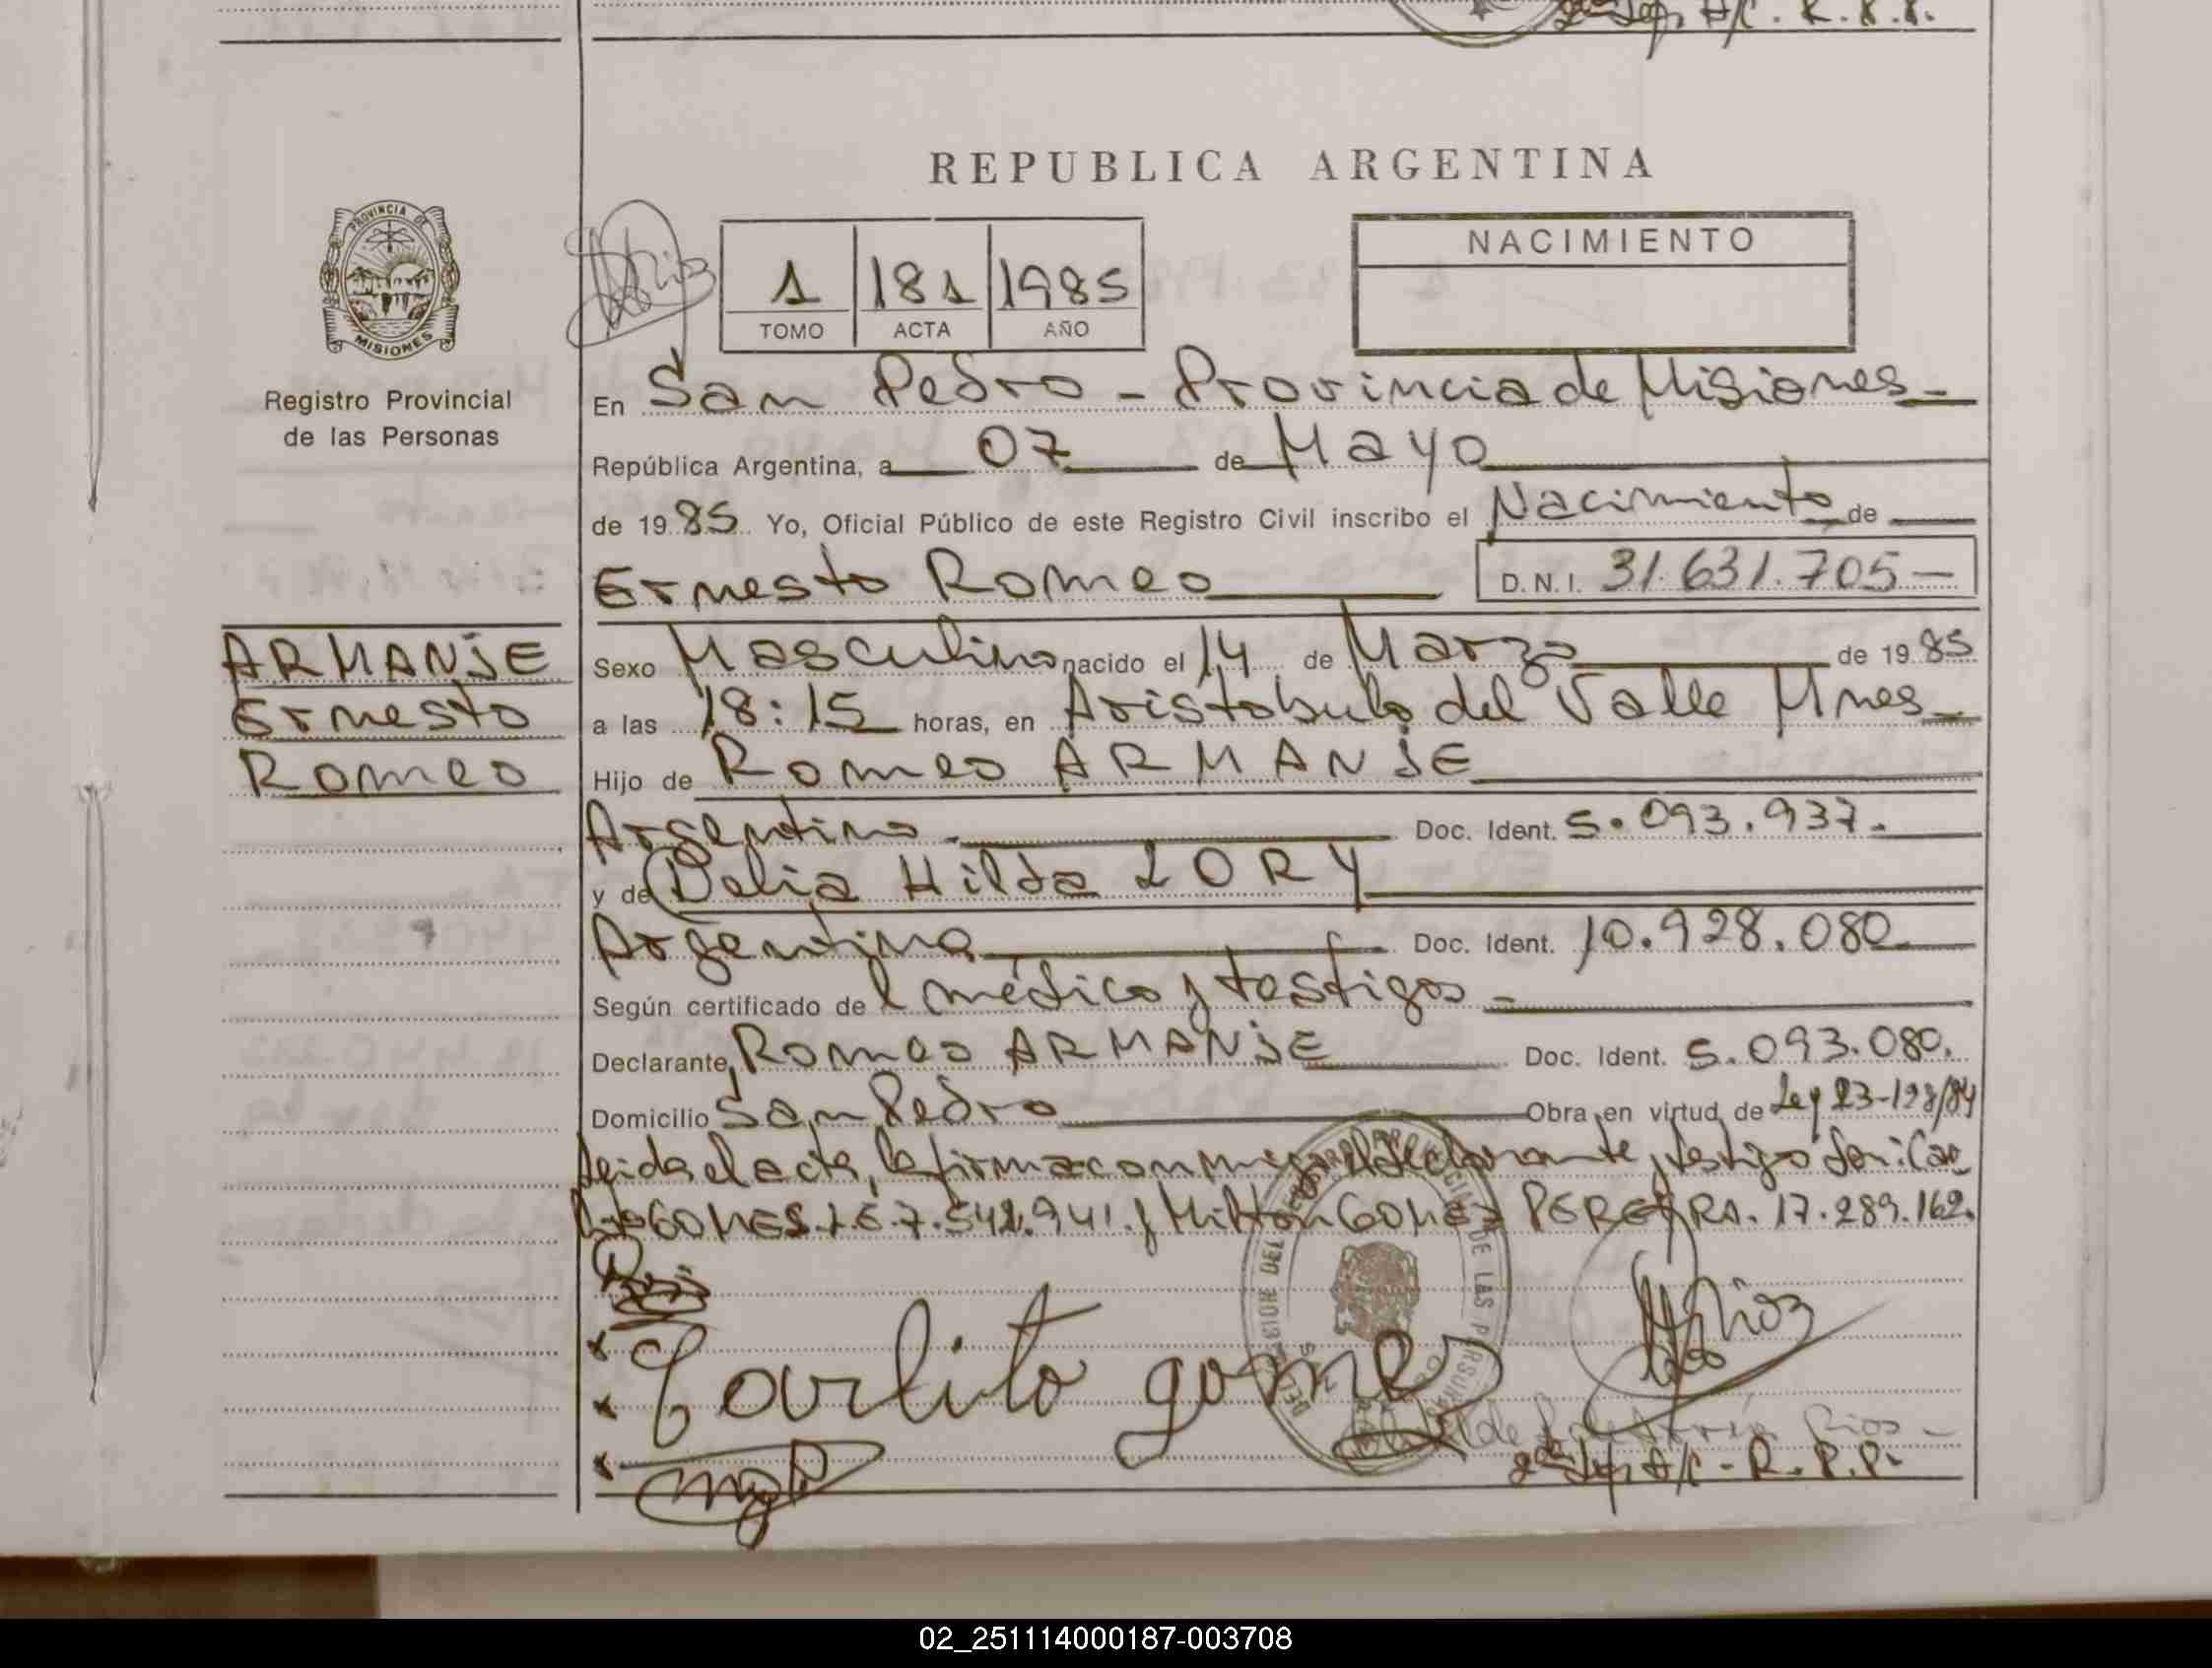 2do Jef. A/C. R.P.P.
REPUBLICA ARGENTINA
PROVINCIA DE
MISIONES
Registro Provincial
de las Personas
1 181 1985
TOMO ACTA AÑO
NACIMIENTO
En San Pedro - Provincia de Misiones -
República Argentina, a 07 de Mayo
de 1985 Yo, Oficial Público de este Registro Civil inscribo el Nacimiento de
Ernesto Romeo D.N.I. 31.631.705 -
ARMANJE
Ernesto
Romeo
Sexo Masculino nacido el 14 de Marzo de 1985
a las 18:15 horas, en Aristobulo del Valle Mnes -
Hijo de Romeo ARMANJE
Argentino - Doc. Ident. 5.093.937.
y de Delia Hilda LORY
Argentina Doc. Ident. 10.928.080
Según certificado del médico y testigos -
Declarante, Romeo ARMANJE Doc. Ident. 5.093.080.
Domicilio San Pedro Obra en virtud de Ley 23-128/84
Leida el acta, la firma con migo el declarante, testigo Don: Car
lito GOMES L.E. 7.542.941. y Milton GOMEZ PEREIRA. 17.289.162.
Carlito gomez
Rios -
2do Jef. A/C - R.P.P.
02_251114000187-003708